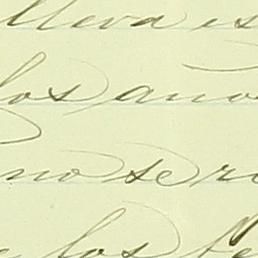 lleva es
los años
no se r
los